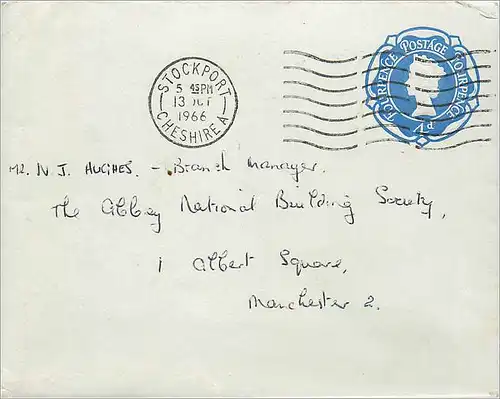 STOCKPORT
5 45PM
13 OCT
1966
CHESHIRE A
POSTAGE FOURPENCE
FOURPENCE
4D
Mr. N. J. HUGHES. – Branch Manager.
The Abbey National Building Society,
1 Albert Square,
Manchester 2.